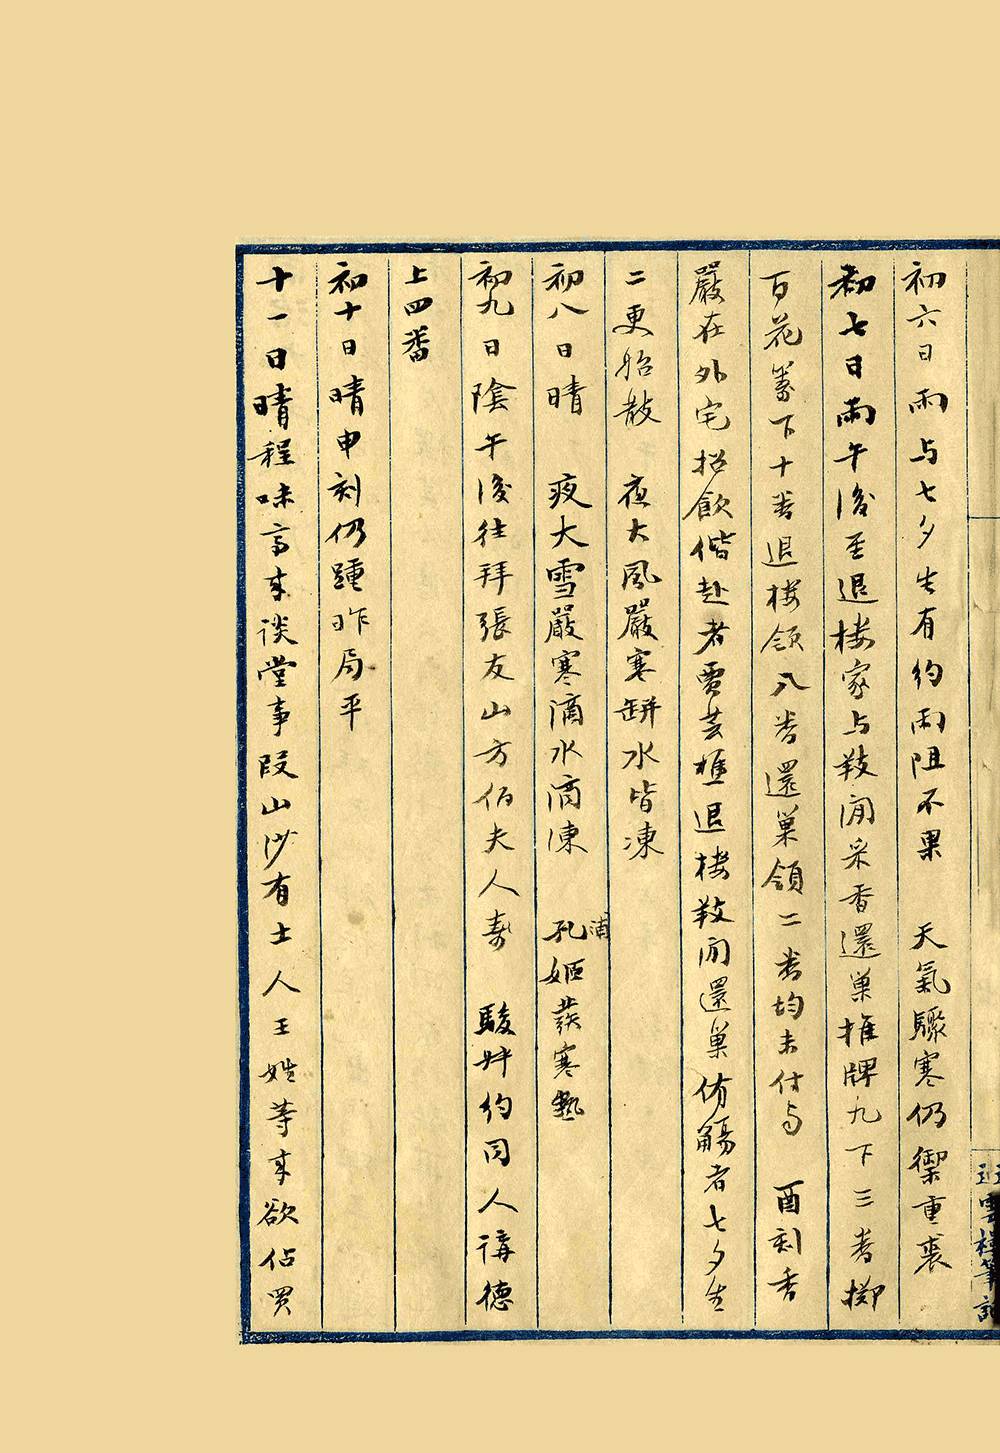 初六日雨与七夕生有約雨阻不果　天氣驟寒仍禦重裘
初七日雨午後至退楼家与敉閒采香還巢推牌九下三番擲
百花籌下十番退楼領八番還巢領二番均未付与　酉刻香
嚴在外宅招飲偕赴者賈芸樵退楼敉閒還巢侑觴者七夕生
二更始散　夜大風嚴寒缾水皆凍
初八日晴　夜大雪嚴寒滴水滴凍　浦孔姬發寒熱
初九日陰午後往拜張友山方伯夫人壽　駿艸約同人講德
上四番
初十日晴申刻仍踵昨局平
十一日晴程味言來談堂事段山沙有士人王姓等來欲佔買
近雲樓筆記